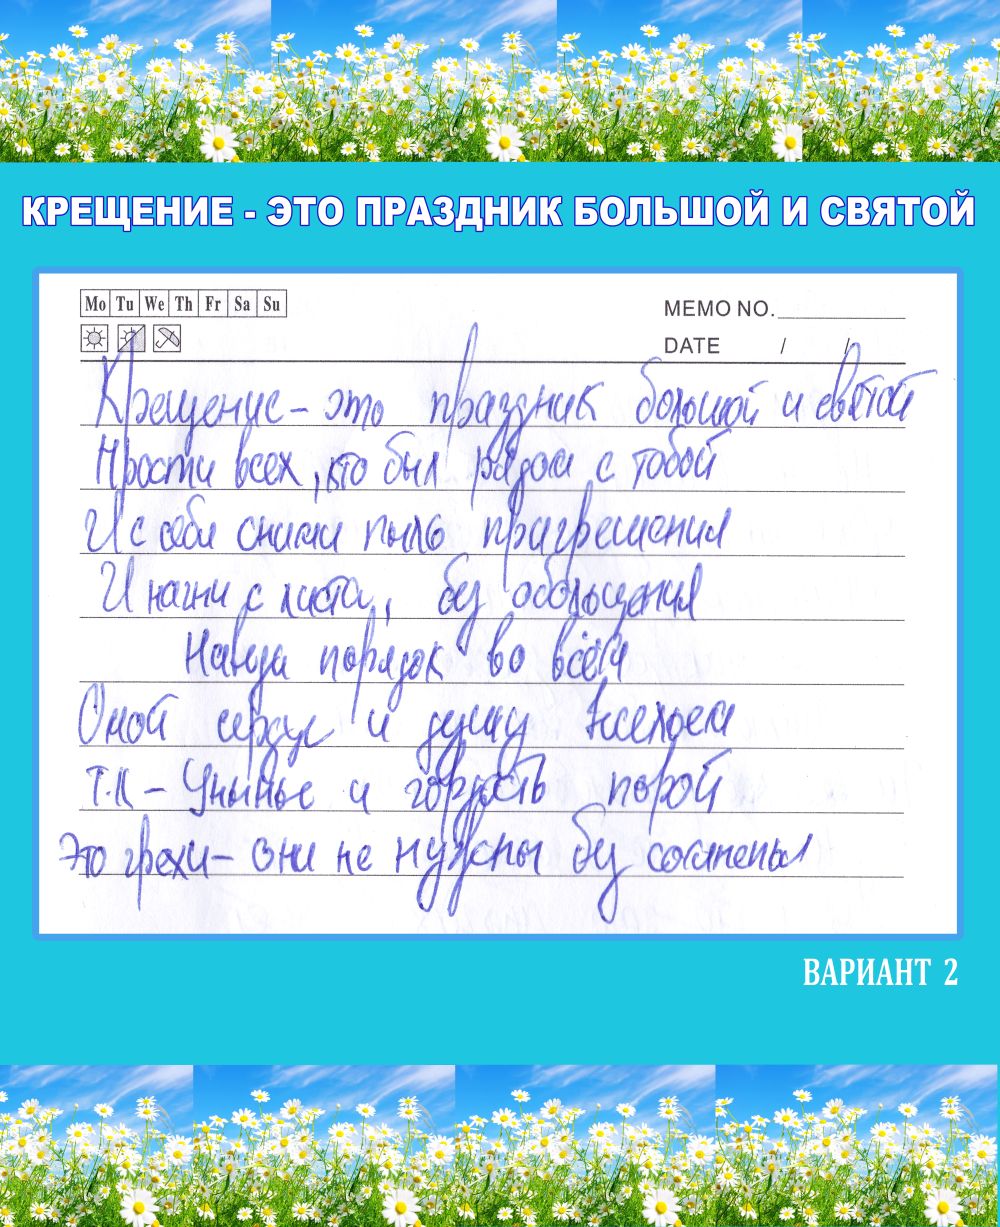 КРЕЩЕНИЕ - ЭТО ПРАЗДНИК БОЛЬШОЙ И СВЯТОЙ
Mo Tu We Th Fr Sa Su
MEMO NO.
DATE / /
Крещение – это праздник большой и святой
Прости всех, кто был рядом с тобой
И с себя сними пыль пригрешения
И начни с листа, без обольщения
Наведи порядок во всём
Омой сердце и душу
Т.к – Унынье и гордость порой
Это грехи – они не нужны
ВАРИАНТ 2